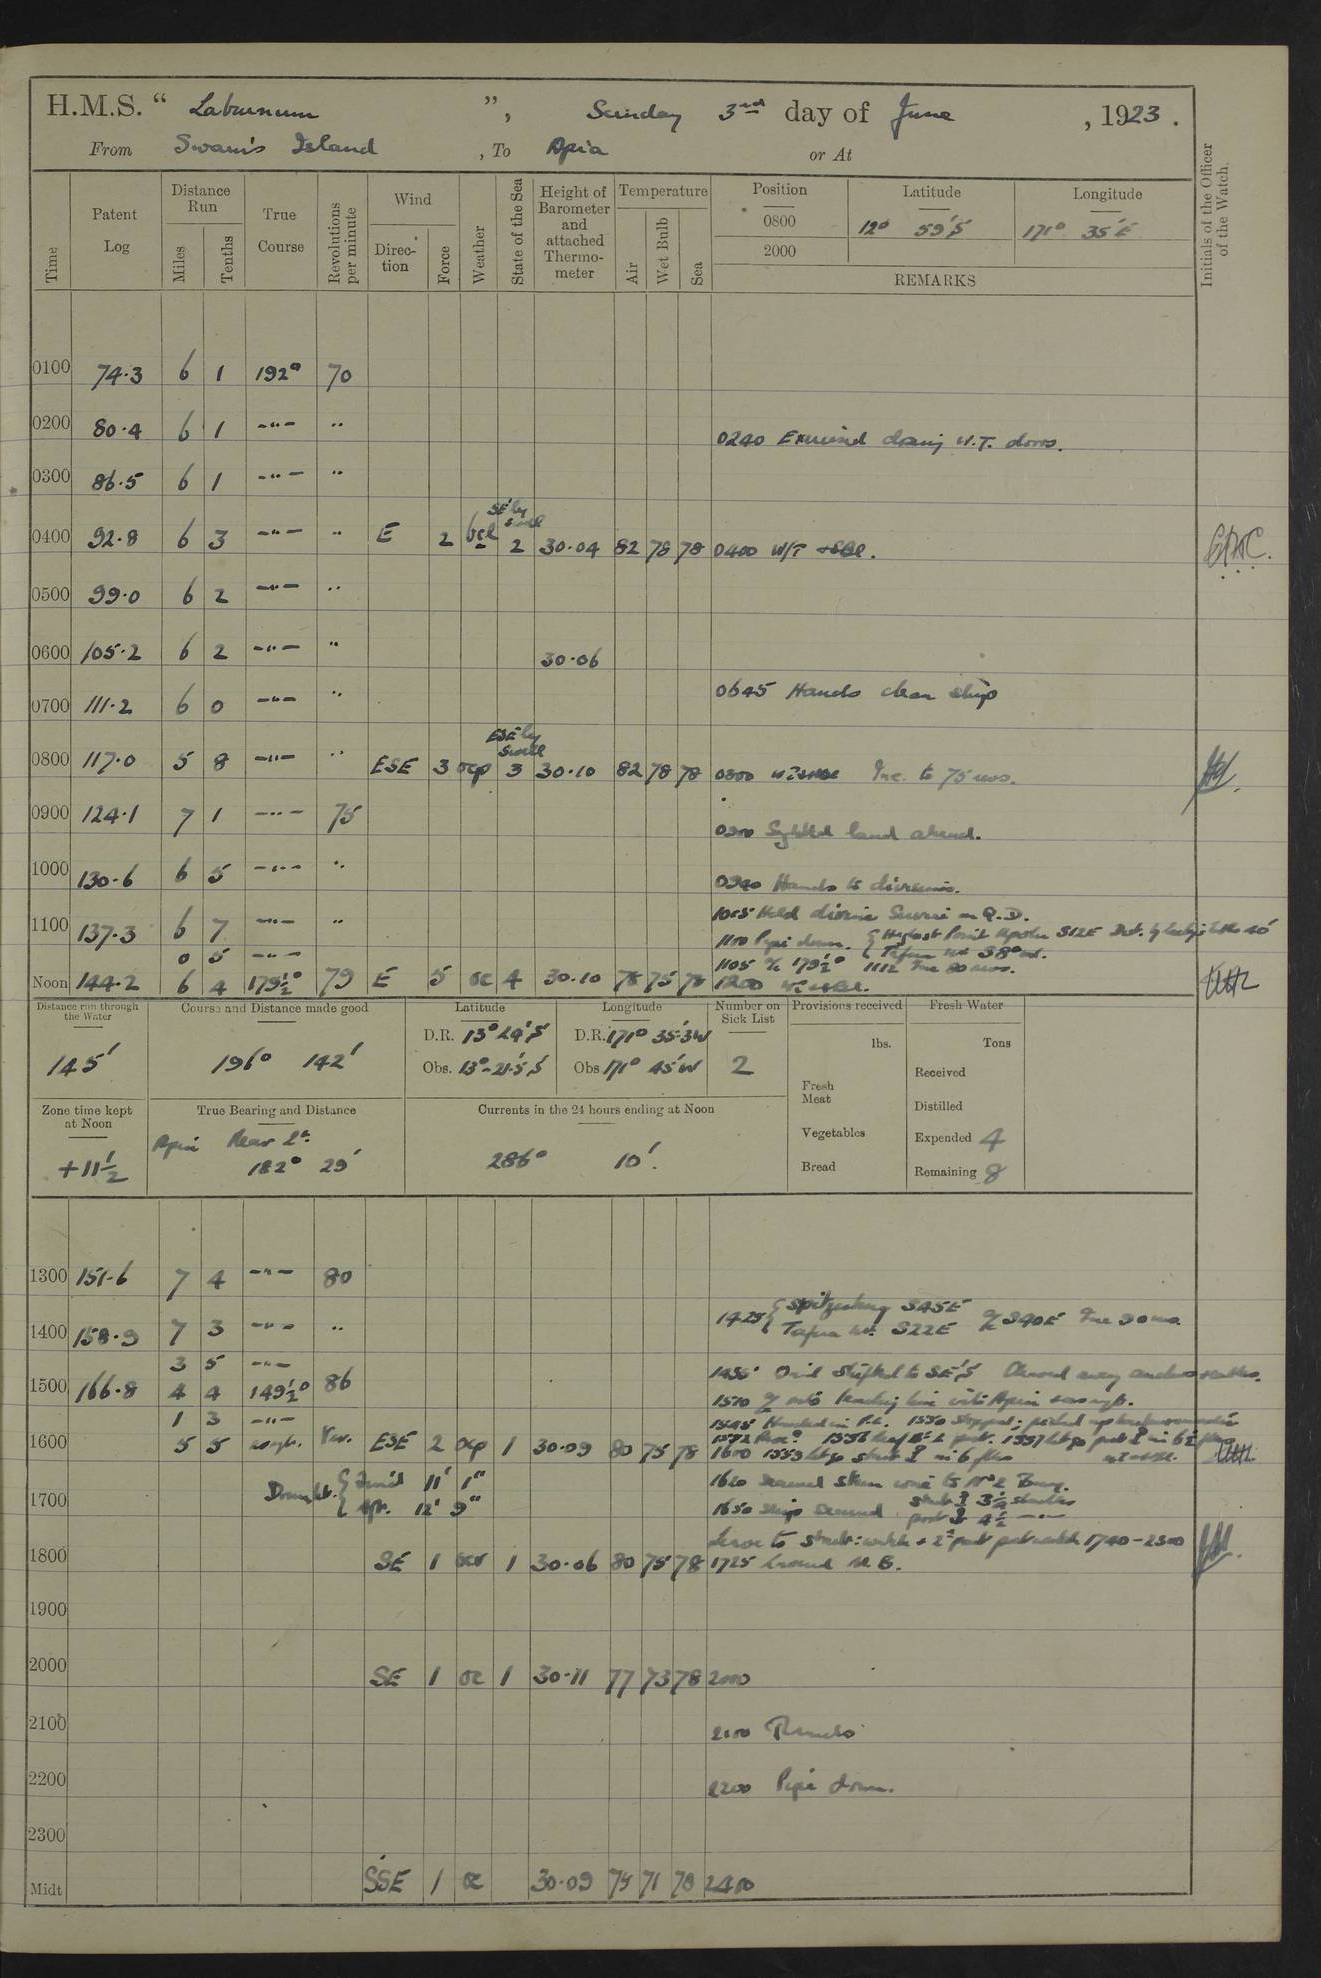 H.M.S. “ Laburnum ”, Sunday 3rd day of June , 1923.
From Swain's Island , To Apia or At
Time
Patent Log
Distance Run
Miles
Tenths
True Course
Revolutions per minute
Wind
Direction
Force
Weather
State of the Sea
Height of Barometer and attached Thermometer
Temperature
Air
Wet Bulb
Sea
Position
Latitude
Longitude
0800 12° 59'S 171° 35'E
2000
REMARKS
Initials of the Officer of the Watch.
0100 74.3 6 1 192° 70
0200 80.4 6 1 -"- "
0240 Exercised closing W.T. doors.
0300 86.5 6 1 -"- "
SE'ly swell
0400 92.8 6 3 -"- " E 2 bcl 2 30.04 82 78 78 0400 W/T
0500 99.0 6 2 -"- "
0600 105.2 6 2 -"- " 30.06
0645 Hands clean ship
0700 111.2 6 0 -"- "
ESE'ly Swell
0800 117.0 5 8 -"- " ESE 3 ocp 3 30.10 82 78 78 0800 Inc. to 75 revs.
0900 124.1 7 1 -"- 75
0900 Sighted land ahead.
1000 130.6 6 5 -"- "
0940 Hands to divisions.
1015 Held divine Service on Q.D.
1100 137.3 6 7 -"- "
1100 Pipe down. { Highest Point Apolu S12E Dist. by
Tafua Mt S8°W.
0 5 -"-
1105 % 179½° 1112 Inc 80 revs.
Noon 144.2 6 4 179½° 79 E 5 oc 4 30.10 78 75 78 1200
Distance run through the Water
145'
Course and Distance made good
196° 142'
Latitude
D.R. 13° 24'S
Obs. 13°-21.5'S
Longitude
D.R. 171° 35.3'W
Obs. 171° 45'W
Number on Sick List
2
Provisions received
lbs.
Fresh Meat
Vegetables
Bread
Fresh Water
Tons
Received
Distilled
Expended 4
Remaining 8
Zone time kept at Noon
+11½
True Bearing and Distance
Apia Rear Lt.
182° 29'
Currents in the 24 hours ending at Noon
286° 10'.
1300 151.6 7 4 -"- 80
1425 { Spitzenberg S45E
Tafua Mt. S22E % S40E Inc 90 revs.
1400 158.9 7 3 -"- "
3 5 -"-
1455 Wind shifted to SE'S Cleared away anchors
1500 166.8 4 4 149½° 86
1510 % onto leading line into Apia
1 3 -"-
1545 Handed in P.L. 1550 Stopped;
1600 5 5 as reqte. Var. ESE 2 ocp 1 30.09 80 75 78 1600 1559 let go starb in 6 fms
Draught. { For'd 11' 1"
Aft. 12' 9"
1610 Secured stern wire to No 2 Buoy.
1700
1650 Ship Secured Starb 3½ shackles
port 4½ -"-
Leave to Starb: watch + 2nd part port watch 1740-2300
1800 SE 1 ocr 1 30.06 80 75 78 1725
1900
2000 SE 1 oc 1 30.11 77 73 78 2000
2100
2100 Rounds
2200
2200 Pipe down.
2300
Midt SSE 1 oc 30.09 74 71 78 2400